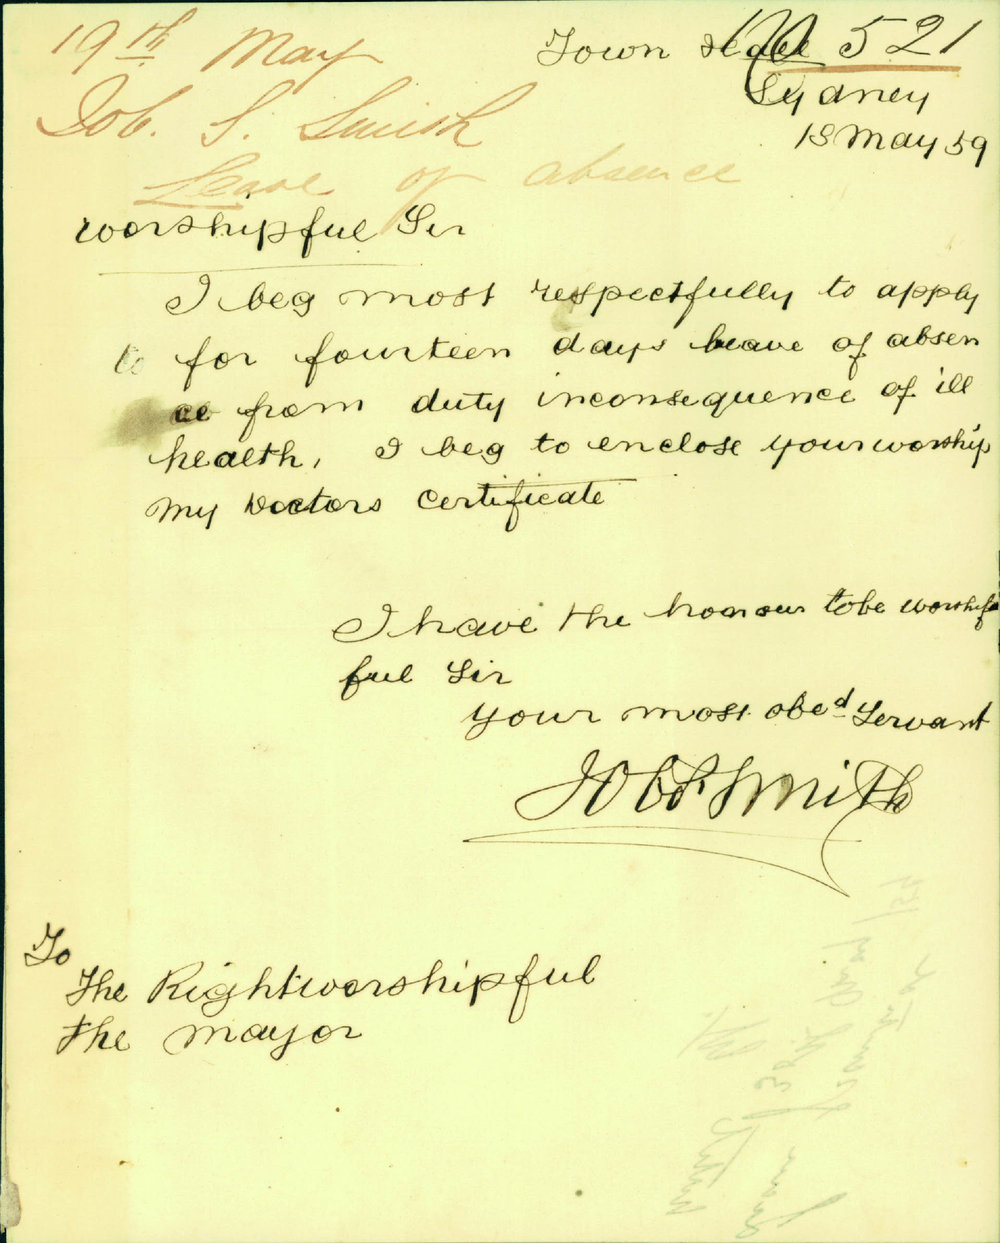 19th May
Job. S. Smith
Leave of absence
No 521
Town Hall
Sydney
18 May 59
worshipful Sir
I beg most respectfully to apply
to for fourteen days leave of absen
ce from duty inconsequence of ill
health, I beg to enclose your worship
my Doctors certificate
I have the honour tobe worship
ful Sir
your most obed Servant
Job S Smith
To
The Rightworshipful
the mayor